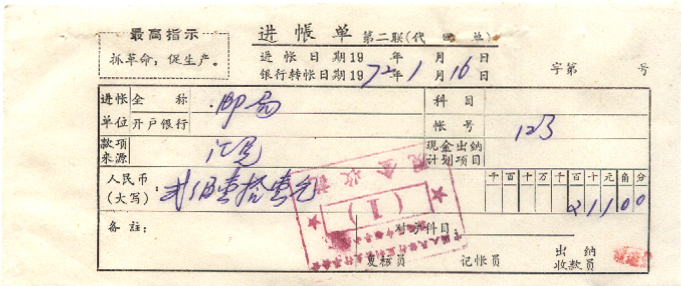 最高指示
抓革命，促生产。
进帐单 第二联(代回单)
进帐日期19 年 月 日
银行转帐日期1972年1月16日 字第 号
进帐单位 全称 邮局 科目
开户银行 帐号 123
款项来源 汇兑 现金出纳计划项目
人民币(大写): 贰佰壹拾壹元 千百十万千百十元角分
21100
现金收讫
(1)
备注: 对方科目:
复核员 记帐员 出纳收款员